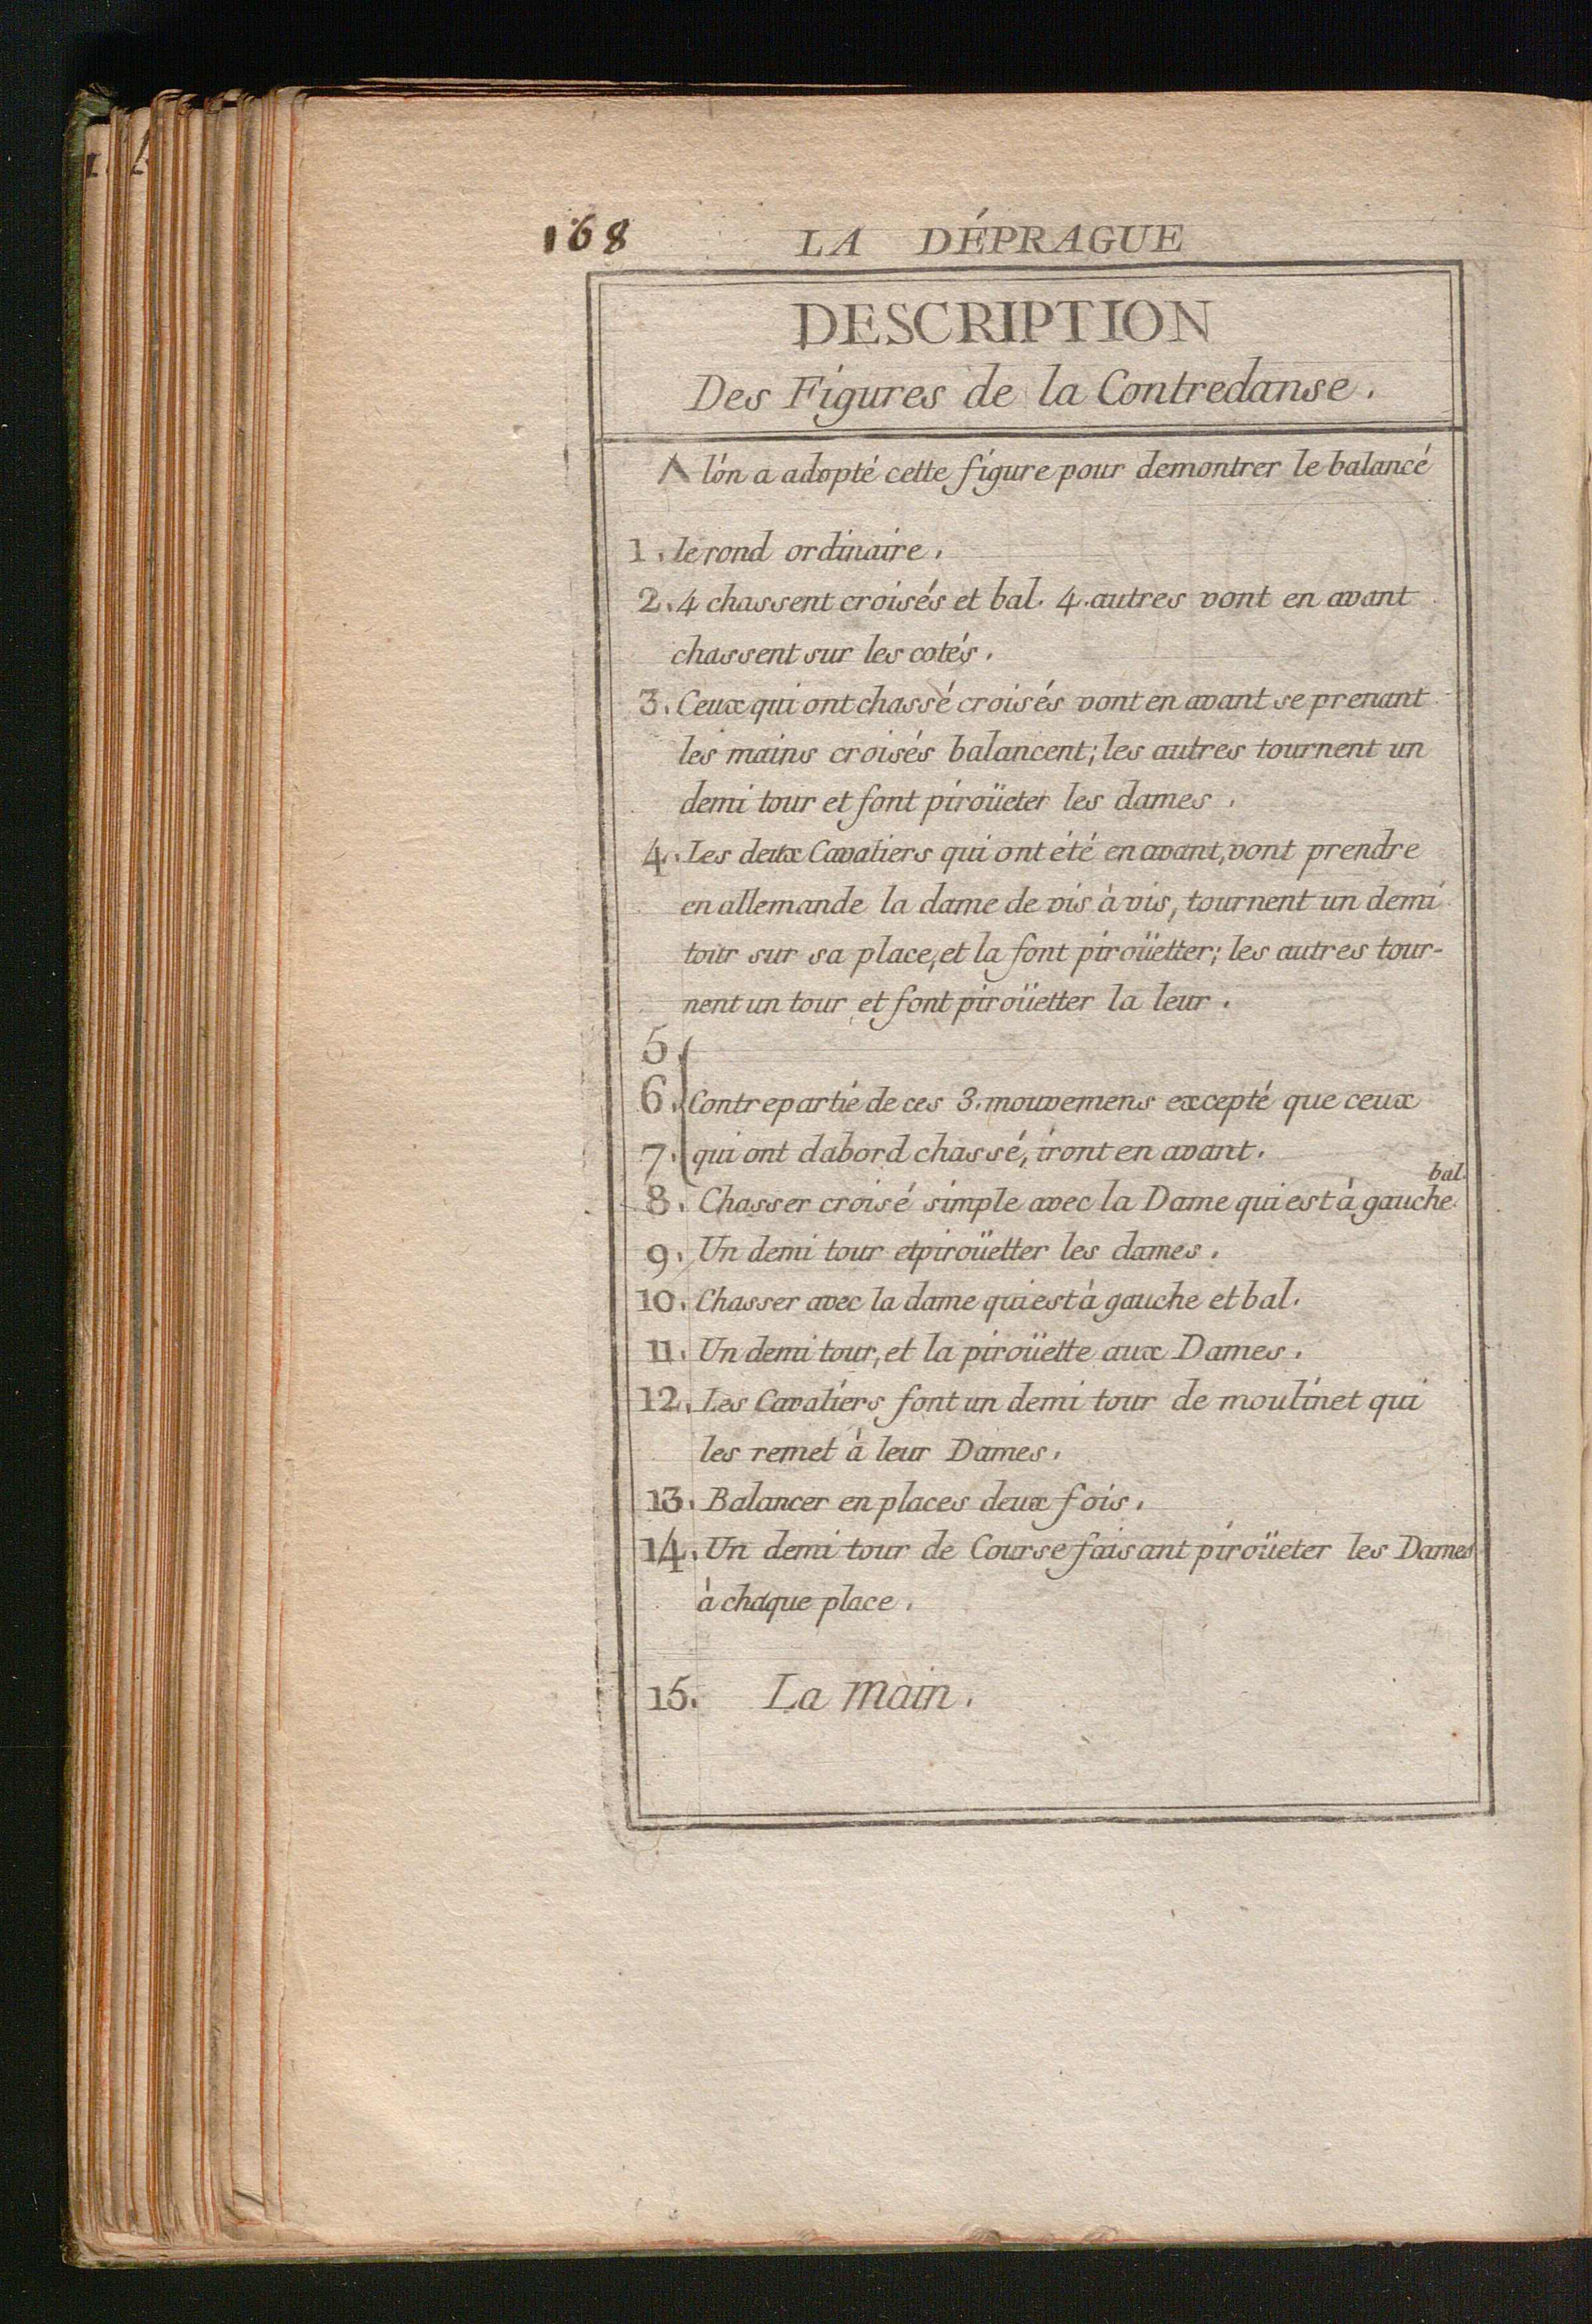 168
LA DÉPRAGUE
DESCRIPTION
Des Figures de la Contredanse.
Λ lón a adopté cette figure pour demontrer le balancé
1. le rond ordinaire.
2. 4 chassent croisés et bal. 4. autres vont en avant
chassent sur les cotés.
3. Ceux qui ont chassé croisés vont en avant se prenant
les mains croisés balancent; les autres tournent un
demi tour et font piroüeter les dames.
4. Les deux Cavaliers qui ont été en avant, vont prendre
en allemande la dame de vis à vis, tournent un demi
tour sur sa place, et la font piroüetter; les autres tour-
nent un tour et font piroüetter la leur.
5.
6. Contrepartie de ces 3. mouvemens excepté que ceux
7. qui ont dabord chassé, iront en avant.
8. Chasser croisé simple avec la Dame qui est à gauche bal.
9. Un demi tour et piroüetter les dames.
10. Chasser avec la dame qui est à gauche et bal.
11. Un demi tour, et la piroüette aux Dames.
12. Les Cavaliers font un demi tour de moulinet qui
les remet à leur Dames.
13. Balancer en places deux fois.
14. Un demi tour de Course faisant piroüeter les Dames
à chaque place.
15. La main.